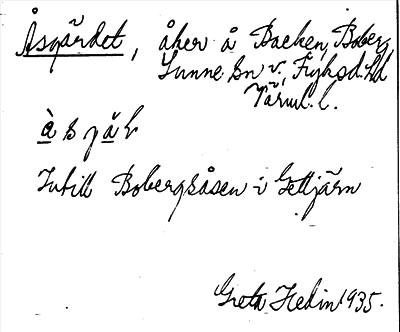 Åsgärdet, åker å Backen, Boberg,
Sunne sn v., Fryksd. hd
Värml. l.
Intill Bobergsåsen i Gettjärn
Greta Hedin 1935.